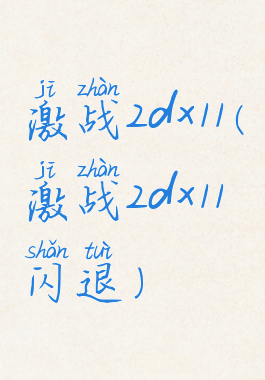 jī zhàn
激战2dx11(
jī zhàn
激战2dx11
shǎn tuì
闪退)